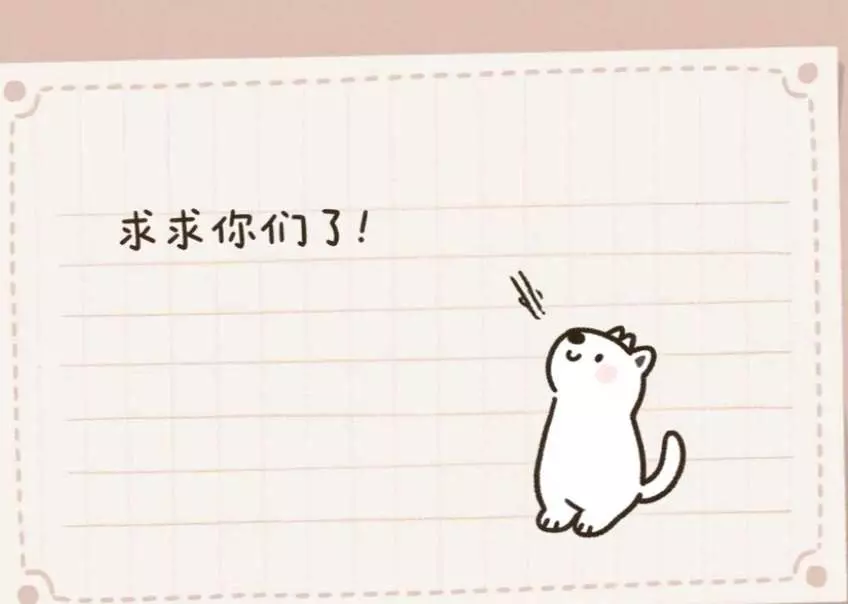 求求你们了！